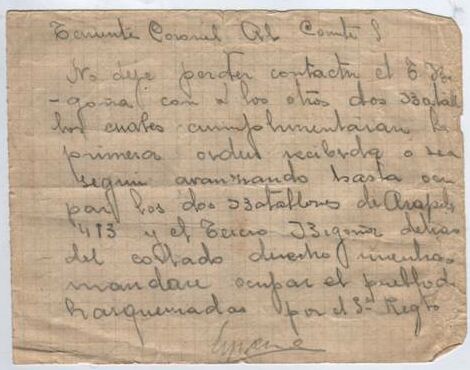 Teniente Coronel Al Comte
No deje perder contacto el T Be
-goña con a los otros dos Batall
los cuales cumplimentaran la
primera orden recibida o sea
seguir avanzando hasta ocu
par los dos Batallones de Arapiles
4 y 3 y el Tercio Begoña detras
del collado derecho mientras
mandare ocupar el pueblo de
barquemadas por el 5º Regto